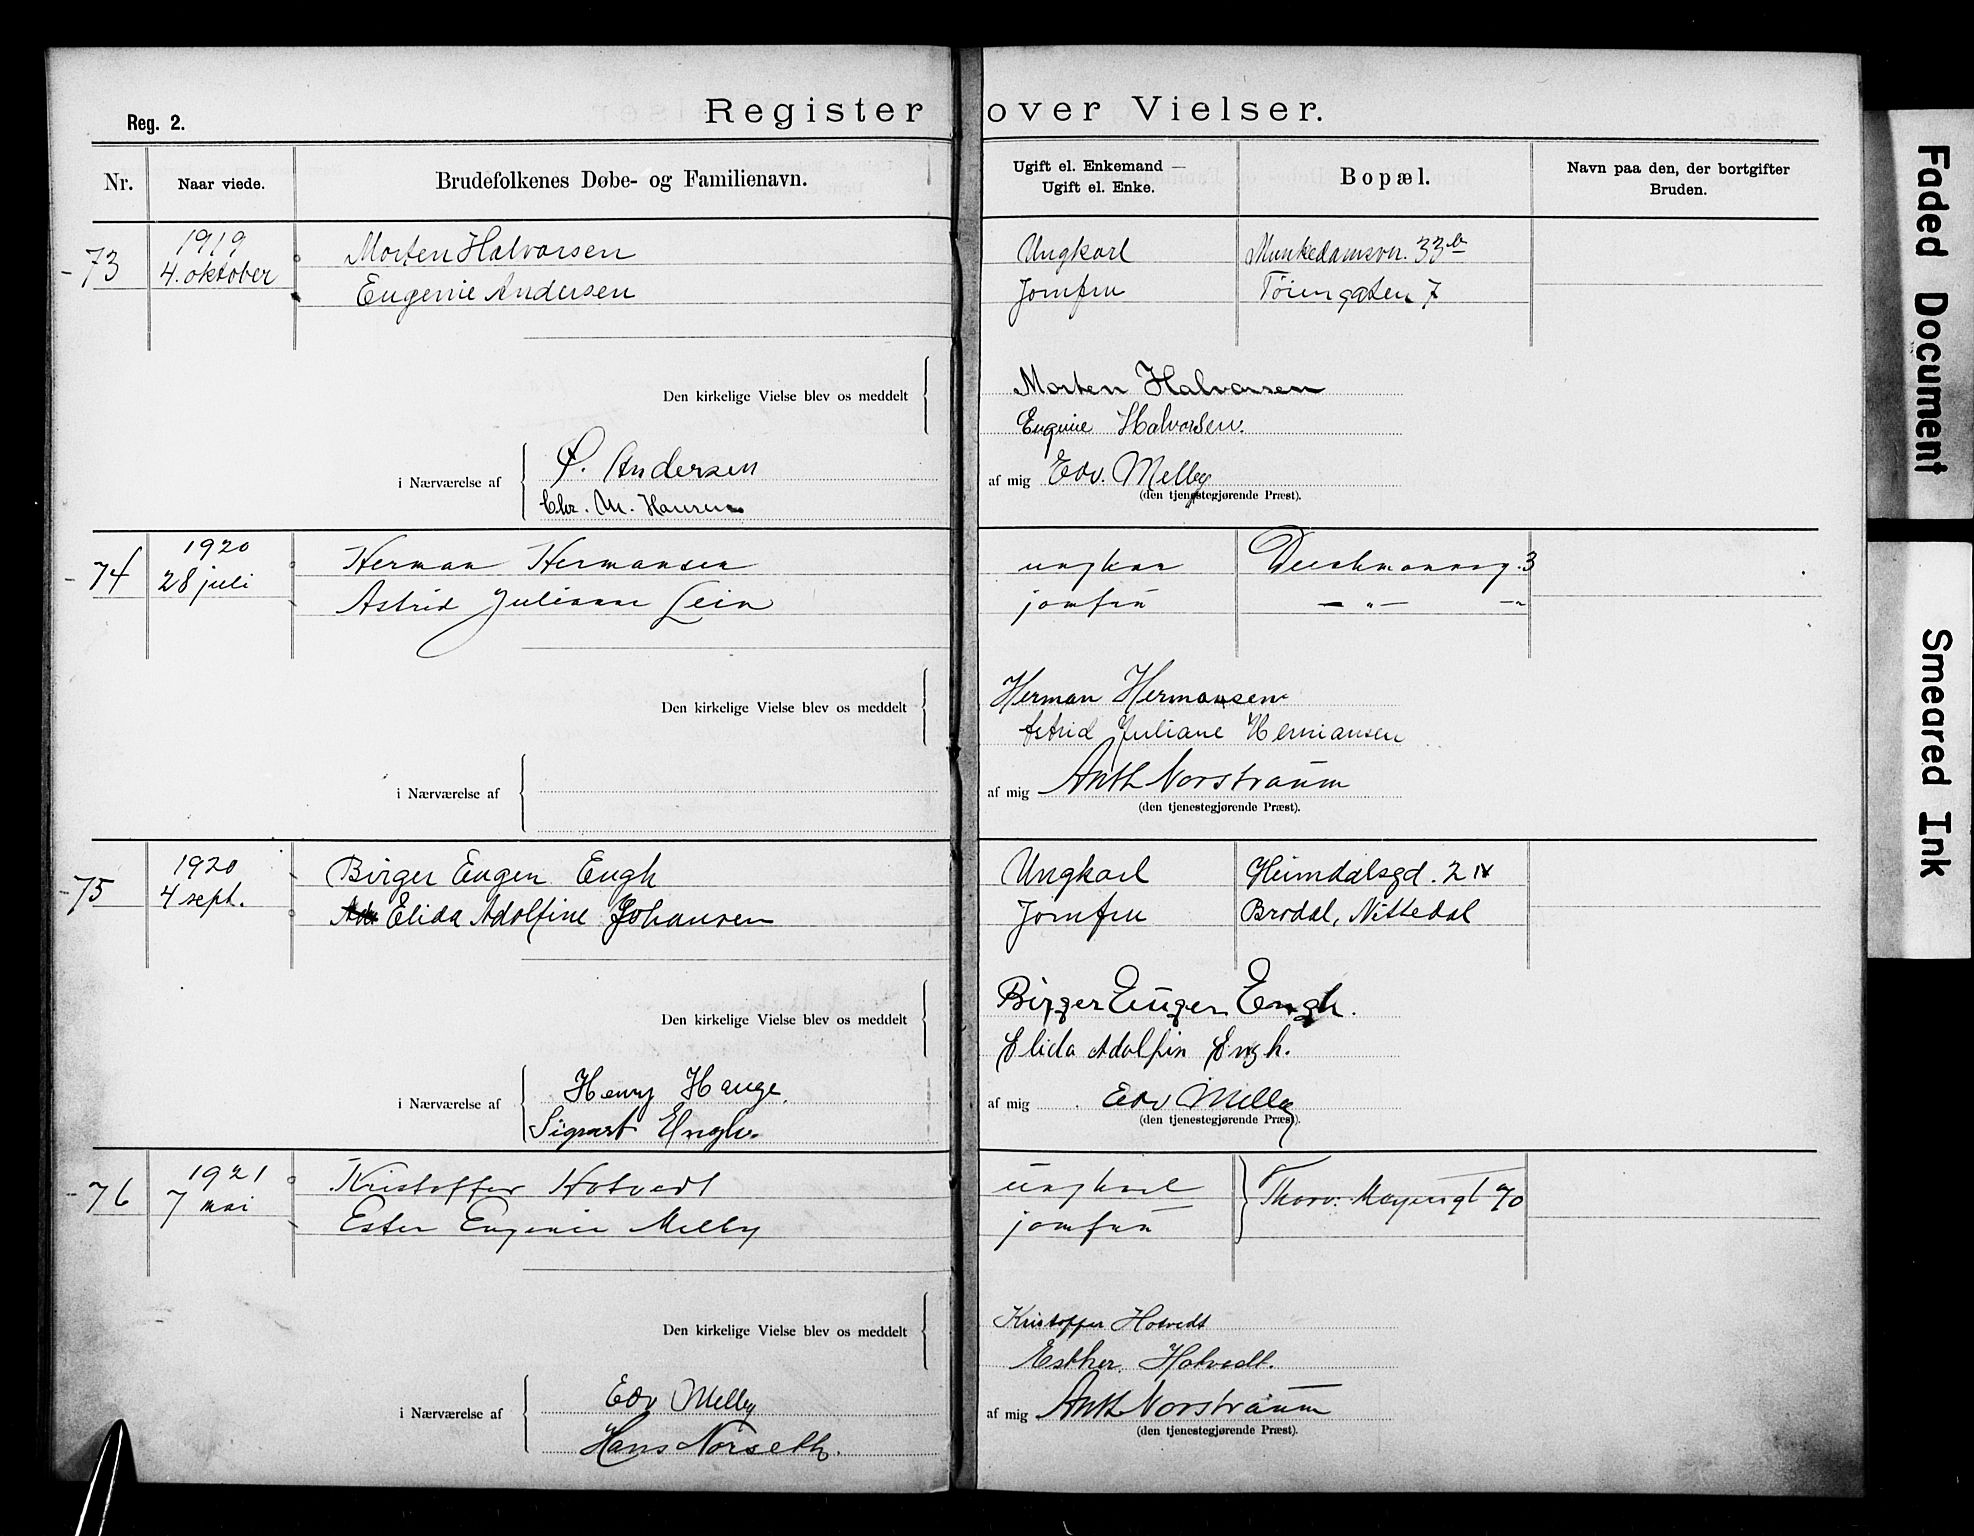 Register over Vielser.
Reg. 2.
Nr. Naar viede. Brudefolkenes Døbe- og Familienavn. Ugift el. Enkemand — Ugift el. Enke. Bopæl. Navn paa den, der bortgifter Bruden.
73 1919 4. oktober
Morten Halvorsen Ungkarl Munkedamsvn. 33b
Eugenie Andersen Jomfru Tøiengaten 7
Den kirkelige Vielse blev os meddelt
Morten Halvorsen
Eugenie Halvorsen.
i Nærværelse af
Ø. Andersen
Chr. M. Hansen
af mig Edv. Melby
(den tjenestegjørende Præst).
74 1920 28 juli
Herman Hermansen ungkar Deichmansg. 3
Astrid Juliane Lein jomfru — „ — — „
Den kirkelige Vielse blev os meddelt
Herman Hermansen
Astrid Juliane Hermansen
i Nærværelse af
af mig Anth Norstraum
(den tjenestegjørende Præst).
75 1920 4 sept.
Birger Eugen Engh Ungkarl Heimdalsgd. 2 IV
Elida Adolfine Johansen Jomfru Brodal, Nittedal
Den kirkelige Vielse blev os meddelt
Birger Eugen Engh.
Elida Adolfin Engh.
i Nærværelse af
Henry Hauge.
Sigvart Engh.
af mig Edv Melby
(den tjenestegjørende Præst).
76 1921 7 mai
Kristoffer Hotvedt ungkarl Thorv. Meyersgt 70
Ester Eugenie Melby jomfru
Den kirkelige Vielse blev os meddelt
Kristoffer Hotvedt
Esther Hotvedt.
i Nærværelse af
Edv Melby
Hans Norseth.
af mig Anth Norstraum
(den tjenestegjørende Præst).
Faded Document
Smeared Ink